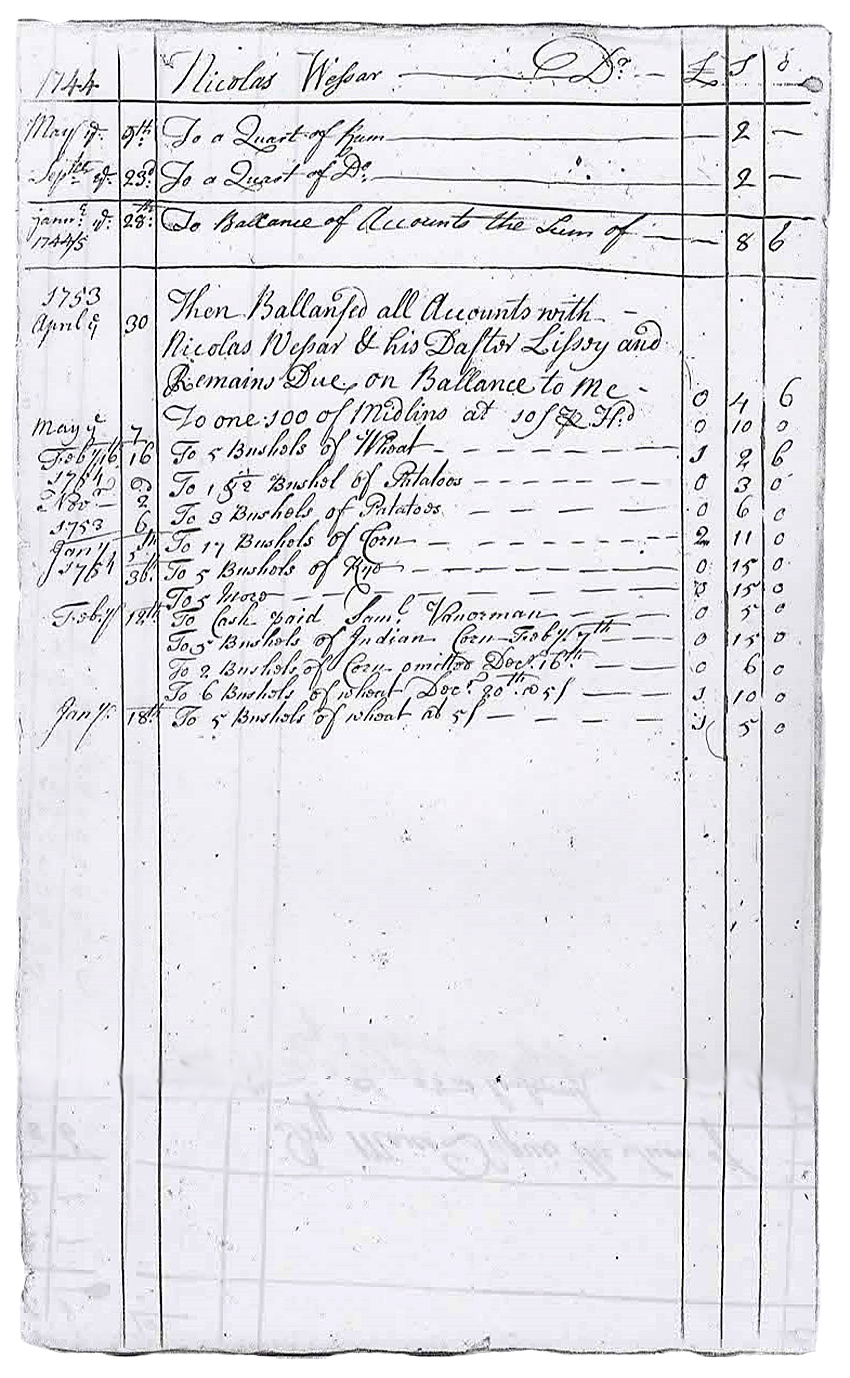 1744 Nicolas Wessar Dr £ s d
May ye 9th To a Quart of Rum 2 —
Septer ye 23d To a Quart of Do 2 —
janry ye 28th To Ballance of Accounts the Sum of 8 6
1744/5
1753 Then Ballansed all Accounts with
April ye 30 Nicolas Wessar & his Dafter Lissey and
Remains Due on Ballance to Me 0 4 6
May ye 7 To one 100 of Midlins at 10s Hd 0 10 0
Feby 16 16 To 5 Bushels of Wheat 1 2 6
1754 To 1 Bushel of Patatoes 0 3 0
Novr 2 To 3 Bushels of Patatoes 0 6 0
1753 6 To 17 Bushels of Corn 2 11 0
Jany 5th To 5 Bushels of Rye 0 15 0
1754 To 5 More 15 0
Feby 12th To Cash paid Saml Vanorman 0 5 0
To 5 Bushels of Indian Corn Feby 7th 0 15 0
To 2 Bushels of Corn omitted Decr 16th 0 6 0
To 6 Bushels of wheat Decr 20th @ 5s 1 10 0
Jany 18th To 5 Bushels of wheat at 5s 1 5 0